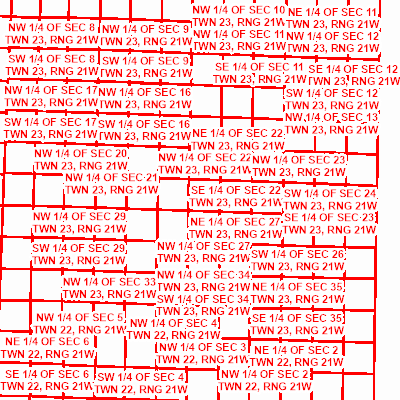 NW 1/4 OF SEC 10
TWN 23, RNG 21W
NE 1/4 OF SEC 11
TWN 23, RNG 21W
NW 1/4 OF SEC 8
TWN 23, RNG 21W
NW 1/4 OF SEC 9
TWN 23, RNG 21W
NW 1/4 OF SEC 11
TWN 23, RNG 21W
NW 1/4 OF SEC 12
TWN 23, RNG 21W
SW 1/4 OF SEC 8
TWN 23, RNG 21W
SW 1/4 OF SEC 9
TWN 23, RNG 21W
SE 1/4 OF SEC 11
TWN 23, RNG 21W
SE 1/4 OF SEC 12
TWN 23, RNG 21W
NW 1/4 OF SEC 17
TWN 23, RNG 21W
NW 1/4 OF SEC 16
TWN 23, RNG 21W
SW 1/4 OF SEC 12
TWN 23, RNG 21W
SW 1/4 OF SEC 17
TWN 23, RNG 21W
SW 1/4 OF SEC 16
TWN 23, RNG 21W
NW 1/4 OF SEC 13
TWN 23, RNG 21W
NE 1/4 OF SEC 22
TWN 23, RNG 21W
NW 1/4 OF SEC 20
TWN 23, RNG 21W
NW 1/4 OF SEC 22
TWN 23, RNG 21W
NW 1/4 OF SEC 23
TWN 23, RNG 21W
NW 1/4 OF SEC 21
TWN 23, RNG 21W
SE 1/4 OF SEC 22
TWN 23, RNG 21W
SW 1/4 OF SEC 24
TWN 23, RNG 21W
NW 1/4 OF SEC 29
TWN 23, RNG 21W
NE 1/4 OF SEC 27
TWN 23, RNG 21W
SE 1/4 OF SEC 23
TWN 23, RNG 21W
SW 1/4 OF SEC 29
TWN 23, RNG 21W
NW 1/4 OF SEC 27
TWN 23, RNG 21W
SW 1/4 OF SEC 26
TWN 23, RNG 21W
NW 1/4 OF SEC 33
TWN 23, RNG 21W
NW 1/4 OF SEC 34
TWN 23, RNG 21W
NE 1/4 OF SEC 35
TWN 23, RNG 21W
SW 1/4 OF SEC 34
TWN 23, RNG 21W
NW 1/4 OF SEC 5
TWN 22, RNG 21W
NW 1/4 OF SEC 4
TWN 22, RNG 21W
SE 1/4 OF SEC 35
TWN 23, RNG 21W
NE 1/4 OF SEC 6
TWN 22, RNG 21W
NW 1/4 OF SEC 3
TWN 22, RNG 21W
NE 1/4 OF SEC 2
TWN 22, RNG 21W
SE 1/4 OF SEC 6
TWN 22, RNG 21W
SW 1/4 OF SEC 4
TWN 22, RNG 21W
NW 1/4 OF SEC 2
TWN 22, RNG 21W